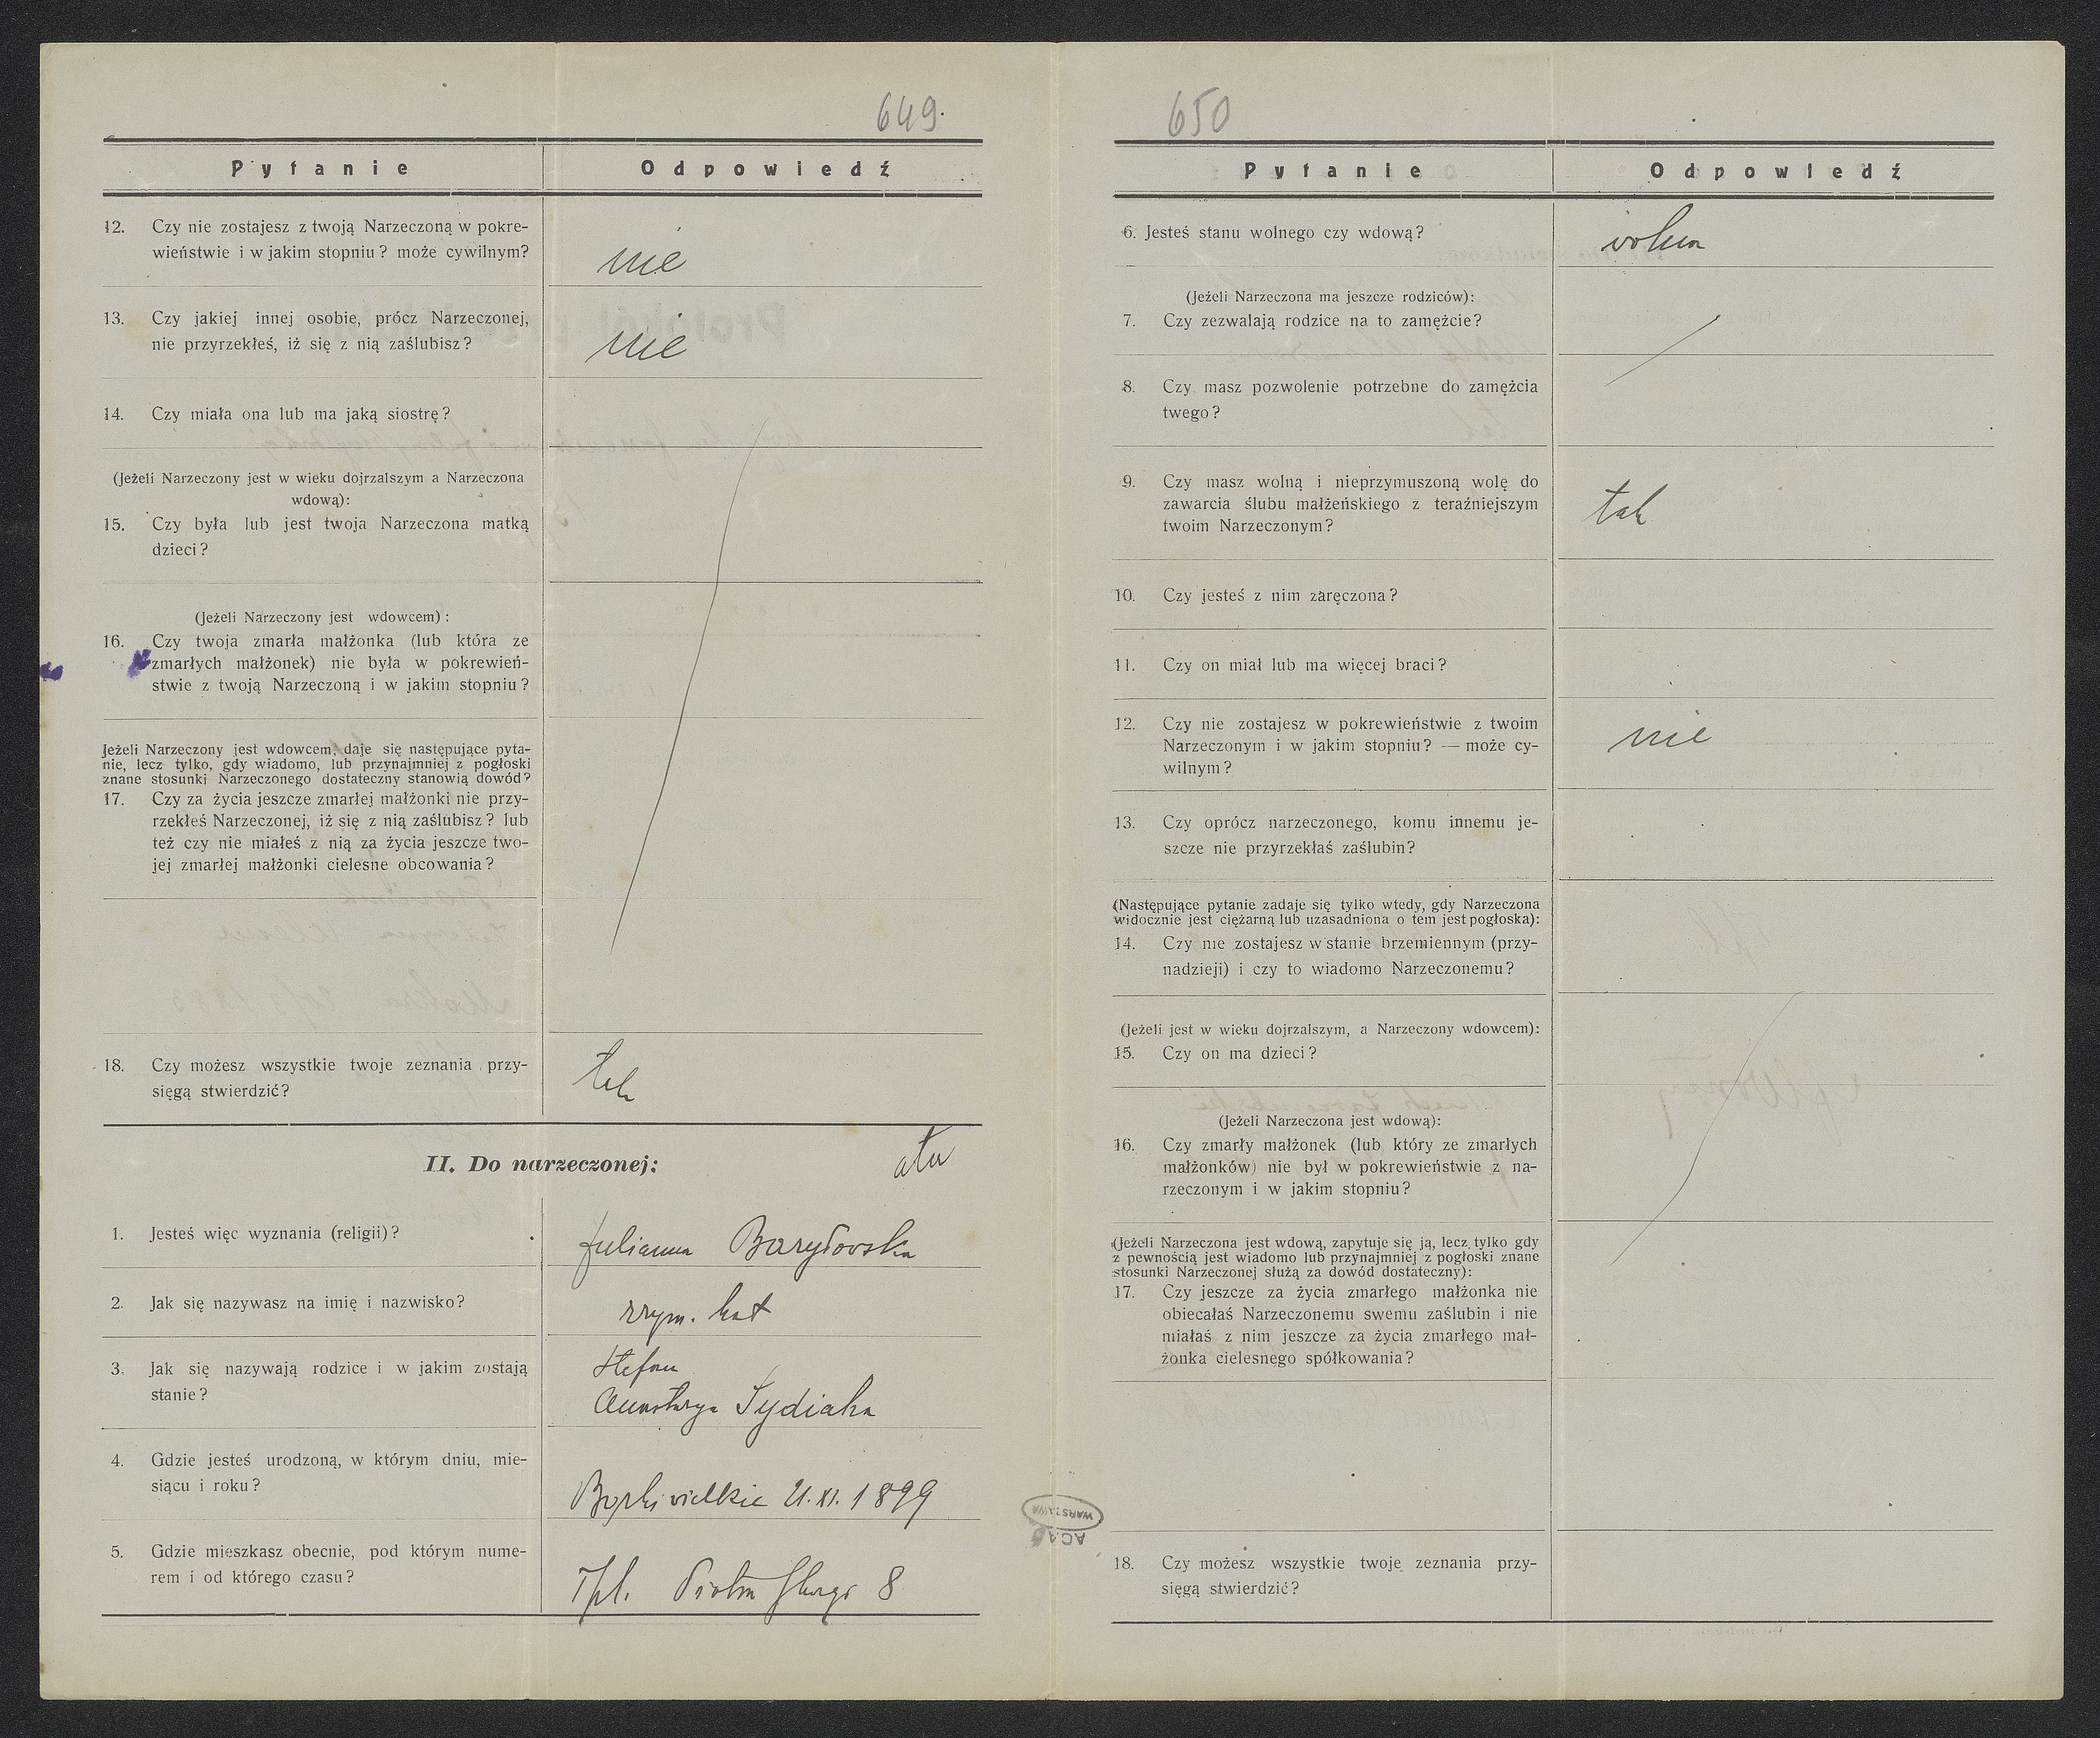 649.
Pytanie Odpowiedź
12. Czy nie zostajesz z twoją Narzeczoną w pokre-
wieństwie i w jakim stopniu? może cywilnym?
nie
13. Czy jakiej innej osobie, prócz Narzeczonej,
nie przyrzekłeś, iż się z nią zaślubisz?
nie
14. Czy miała ona lub ma jaką siostrę?
(Jeżeli Narzeczony jest w wieku dojrzalszym a Narzeczona
wdową):
15. Czy była lub jest twoja Narzeczona matką
dzieci?
(Jeżeli Narzeczony jest wdowcem):
16. Czy twoja zmarła małżonka (lub która ze
zmarłych małżonek) nie była w pokrewień-
stwie z twoją Narzeczoną i w jakim stopniu?
Jeżeli Narzeczony jest wdowcem, daje się następujące pyta-
nie, lecz tylko, gdy wiadomo, lub przynajmniej z pogłoski
znane stosunki Narzeczonego dostateczny stanowią dowód?
17. Czy za życia jeszcze zmarłej małżonki nie przy-
rzekłeś Narzeczonej, iż się z nią zaślubisz? lub
też czy nie miałeś z nią za życia jeszcze two-
jej zmarłej małżonki cielesne obcowania?
18. Czy możesz wszystkie twoje zeznania przy-
sięgą stwierdzić?
tak
II. Do narzeczonej:
1. Jesteś więc wyznania (religii)?
Julianna
2. Jak się nazywasz na imię i nazwisko?
rzym. kat
3. Jak się nazywają rodzice i w jakim zostają
stanie?
Stefan
Anastazya Sydiaha
4. Gdzie jesteś urodzoną, w którym dniu, mie-
siącu i roku?
Borki wielkie 21. XI. 1899
5. Gdzie mieszkasz obecnie, pod którym nume-
rem i od którego czasu?
Tpl. Piotra Skargi 8
650
Pytanie Odpowiedź
6. Jesteś stanu wolnego czy wdową?
wolna
(Jeżeli Narzeczona ma jeszcze rodziców):
7. Czy zezwalają rodzice na to zamężcie?
8. Czy masz pozwolenie potrzebne do zamężcia
twego?
9. Czy masz wolną i nieprzymuszoną wolę do
zawarcia ślubu małżeńskiego z teraźniejszym
twoim Narzeczonym?
tak
10. Czy jesteś z nim zaręczona?
11. Czy on miał lub ma więcej braci?
12. Czy nie zostajesz w pokrewieństwie z twoim
Narzeczonym i w jakim stopniu? — może cy-
wilnym?
nie
13. Czy oprócz narzeczonego, komu innemu je-
szcze nie przyrzekłaś zaślubin?
(Następujące pytanie zadaje się tylko wtedy, gdy Narzeczona
widocznie jest ciężarną lub uzasadniona o tem jest pogłoska):
14. Czy nie zostajesz w stanie brzemiennym (przy-
nadzieji) i czy to wiadomo Narzeczonemu?
(Jeżeli jest w wieku dojrzalszym, a Narzeczony wdowcem):
15. Czy on ma dzieci?
(Jeżeli Narzeczona jest wdową):
16. Czy zmarły małżonek (lub który ze zmarłych
małżonków) nie był w pokrewieństwie z na-
rzeczonym i w jakim stopniu?
(Jeżeli Narzeczona jest wdową, zapytuje się ją, lecz tylko gdy
z pewnością jest wiadomo lub przynajmniej z pogłoski znane
stosunki Narzeczonej służą za dowód dostateczny):
17. Czy jeszcze za życia zmarłego małżonka nie
obiecałaś Narzeczonemu swemu zaślubin i nie
miałaś z nim jeszcze za życia zmarłego mał-
żonka cielesnego spółkowania?
18. Czy możesz wszystkie twoje zeznania przy-
sięgą stwierdzić?
AGAD
WARSZAWA